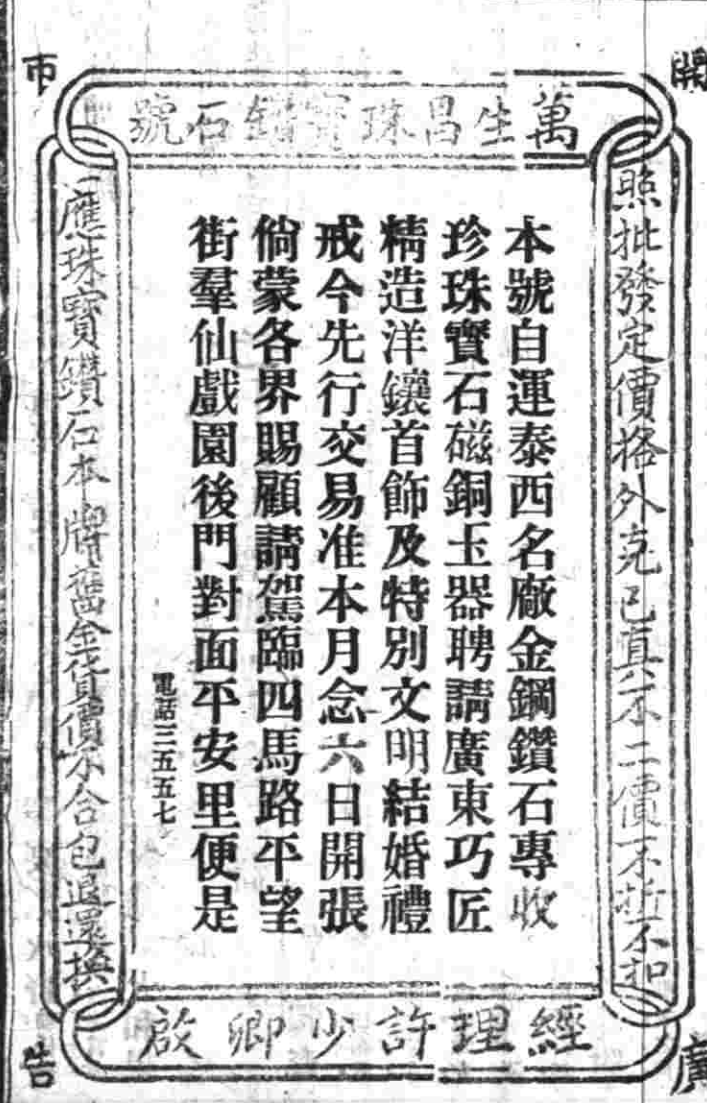 開市廣告
萬生昌珠寶鑽石號
照批發定價格外克己真不二價不折不扣
本號自運泰西名廠金鋼鑽石專收
珍珠寶石磁銅玉器聘請廣東巧匠
精造洋鑲首飾及特別文明結婚禮
戒今先行交易准本月念六日開張
倘蒙各界賜顧請駕臨四馬路平望
街羣仙戲園後門對面平安里便是
電話三五五七
一應珠寶鑽石本牌舊金貨價不合包退還換
經理許少卿啟